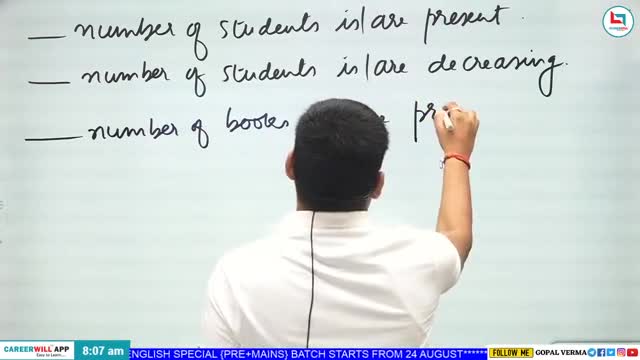 ___ number of students is/are present.
___ number of students is/are decreasing.
___ number of books pr
CAREERWILL APP
Easy to Learn...
8:07 am
ENGLISH SPECIAL {PRE+MAINS} BATCH STARTS FROM 24 AUGUST******
FOLLOW ME
GOPAL VERMA